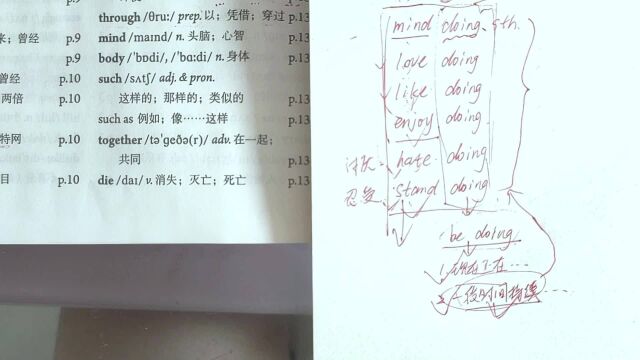 through /θruː/ prep. 以；凭借；穿过 p.13
来；曾经 p.9 mind /maɪnd/ n. 头脑；心智 p.13
p.9 body /'bɒdi/, /'bɑːdi/ n. 身体 p.13
曾经 p.10 such /sʌtʃ/ adj. & pron.
两倍 p.10 这样的；那样的；类似的 p.13
such as 例如；像……这样 p.13
特网 p.10 together /tə'ɡeðə(r)/ adv. 在一起；
共同 p.13
目 p.10 die /daɪ/ v. 消失；灭亡；死亡 p.13
mind doing sth.
love doing
like doing
enjoy doing
讨厌 hate doing
忍受 stand doing
be doing
1. 现在正在…
2. 一段时间持续…